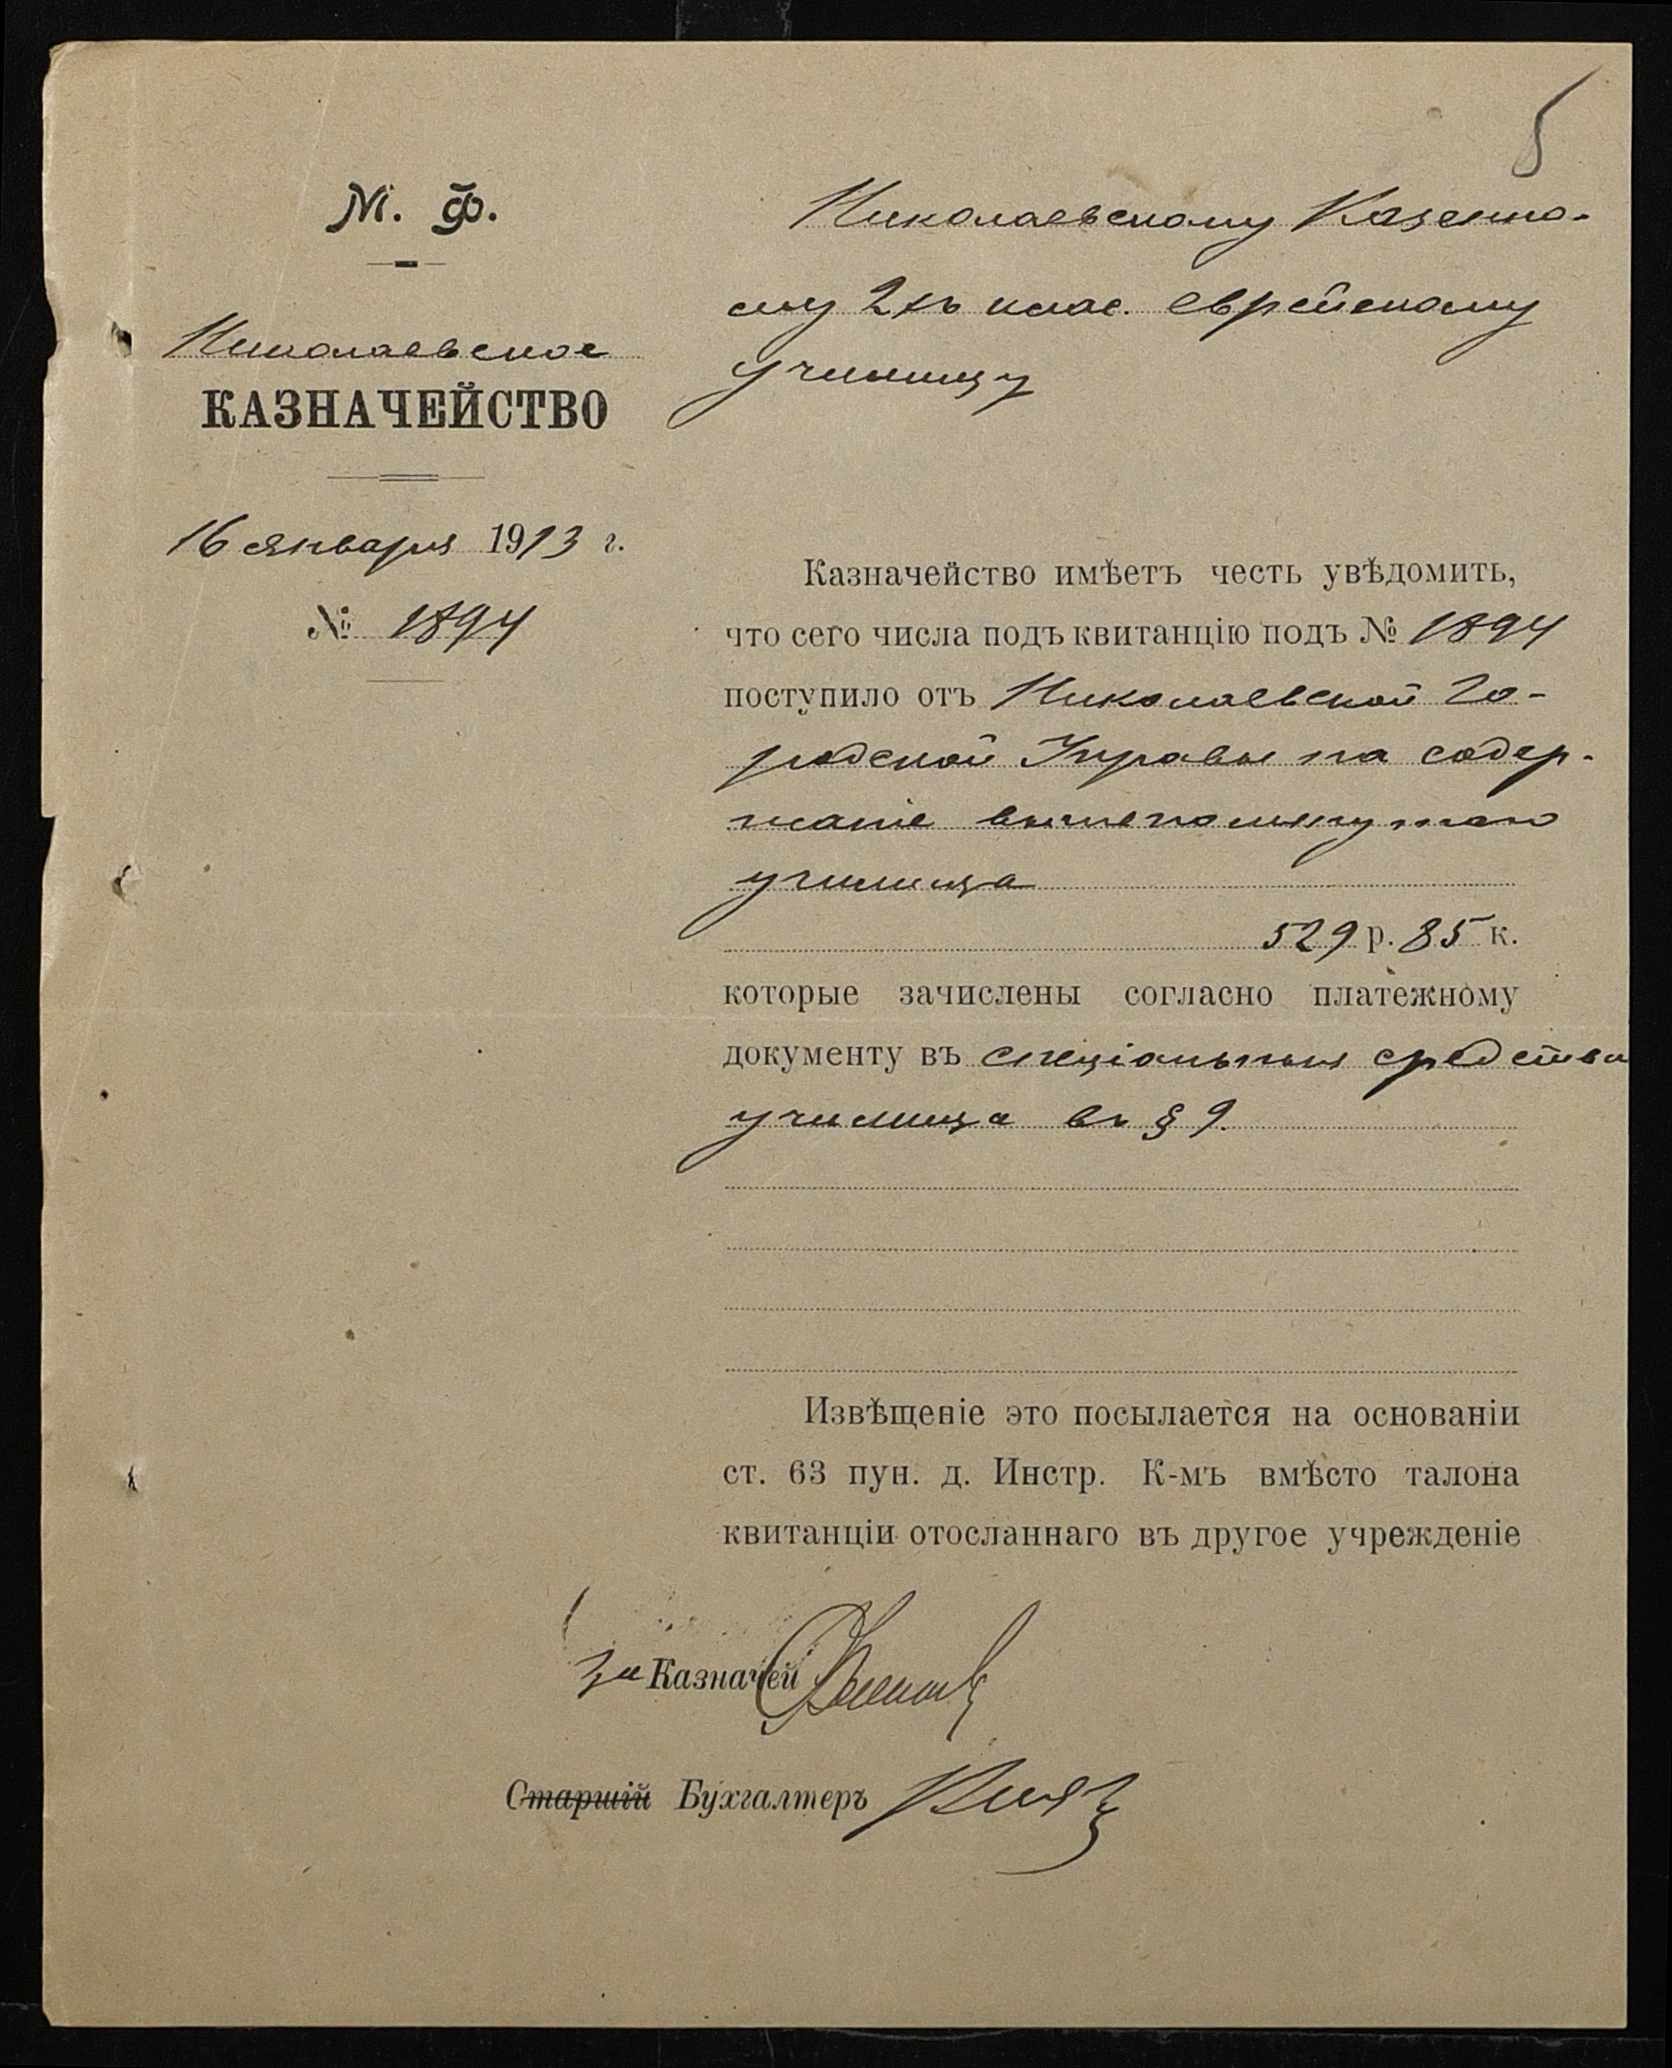 5
М. Ф.
Николаевское
КАЗНАЧЕЙСТВО
16 января 1913 г.
№ 1894
Николаевскому Казенно-
му 2хъ клас. еврейскому
училищу
Казначейство имѣетъ честь увѣдомить,
что сего числа подъ квитанцію подъ № 1894
поступило отъ Николаевской Го-
родской Управы на содер-
жаніе вышепомянутаго
училища
529 р. 85 к.
которые зачислены согласно платежному
документу въ спеціальныя средства
училища въ § 9.
Извѣщеніе это посылается на основаніи
ст. 63 пун. д. Инстр. К-мъ вмѣсто талона
квитанціи отосланнаго въ другое учрежденіе
За Казначей
Старшій Бухгалтеръ